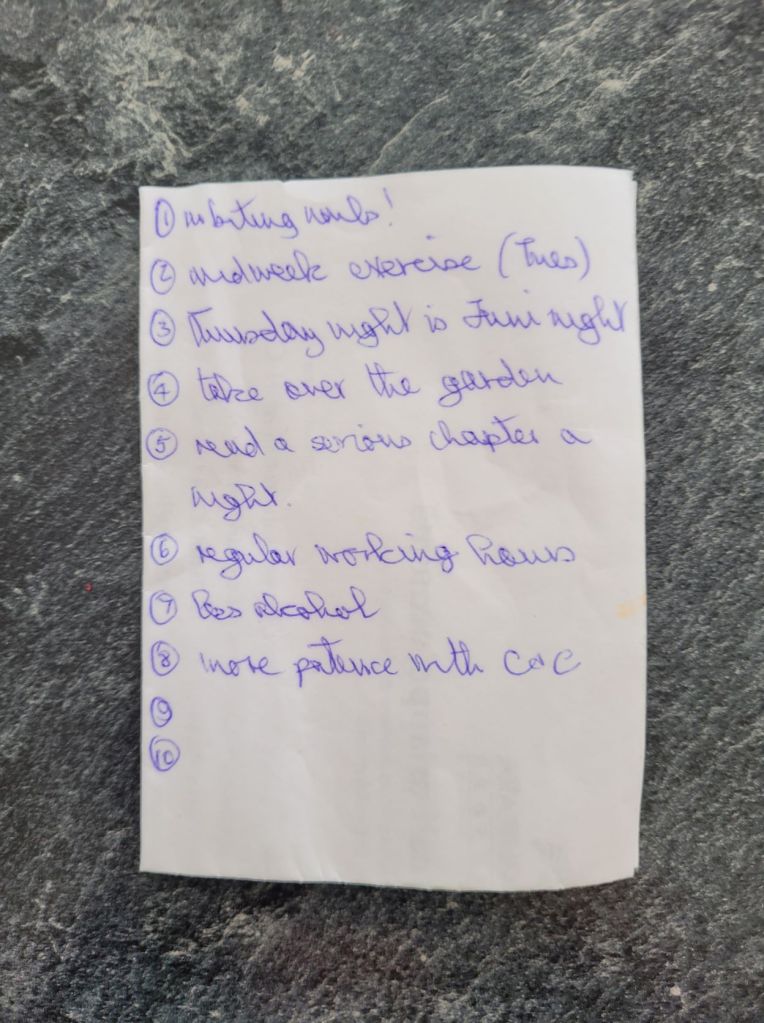 ① biting nails!
② midweek exercise (Tues)
③ Thursday night is night
④ take over the garden
⑤ read a serious chapter a
night.
⑥ regular working hours
⑦ less alcohol
⑧ more patience with C & C
⑨
⑩